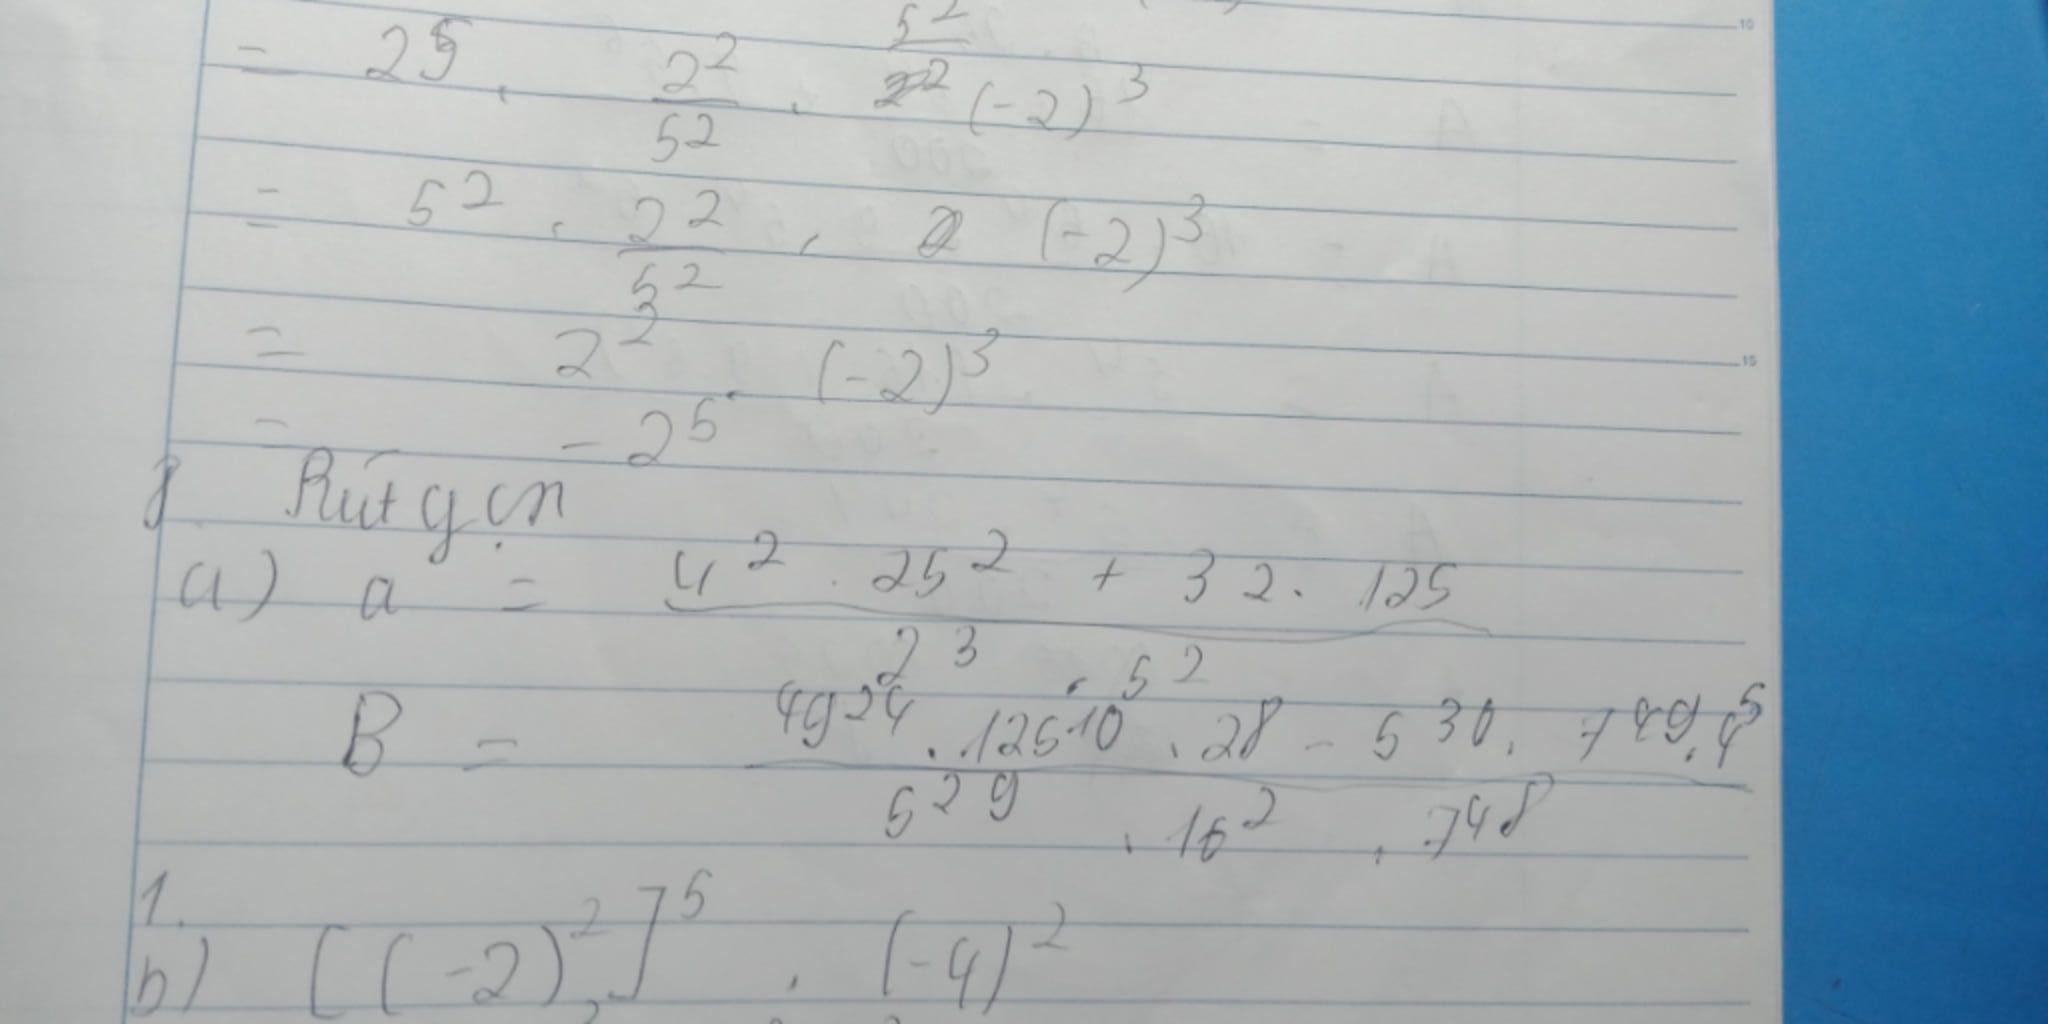 = 25 . 2²/5² . 5²/2² (-2)³
= 5² . 2²/5² . (-2)³
= 2² . (-2)³
= -2⁵
Rút gọn
a) a = (4² . 25² + 32 . 125)/(2³ . 5²)
B = (49²⁴ . 125¹⁰ . 28 - 5³⁰ . 7⁴⁹ . 4⁵)/(5²⁹ . 16² . 7⁴⁸)
1.
b) [(-2)²]⁵ . (-4)²